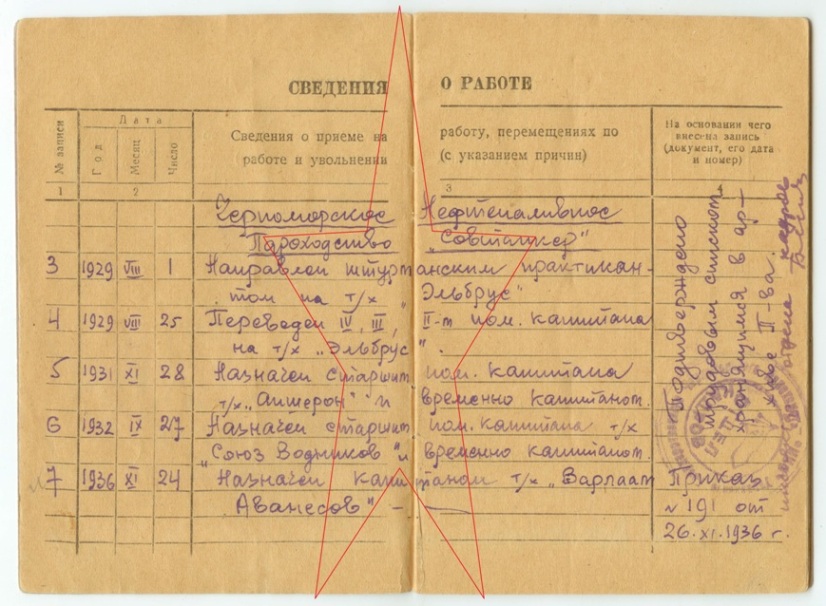 СВЕДЕНИЯ О РАБОТЕ
№ записи
Дата
Год
Месяц
Число
Сведения о приеме на работу, перемещениях по
работе и увольнении (с указанием причин)
На основании чего
внесена запись
(документ, его дата
и номер)
1 2 3 4
Черноморское Нефтеналивное
Пароходство „Совтанкер"
3 1929 VIII 1 Направлен штурманским практикан-
том на т/х „Эльбрус"
4 1929 VIII 25 Переведен IV, III, II-м пом. капитана
на т/х „Эльбрус".
5 1931 XI 28 Назначен старшим пом. капитана
т/х „Апшерон" и временно капитаном.
6 1932 IX 27 Назначен старшим пом. капитана т/х
„Союз Водников" и временно капитаном.
7 1936 XI 24 Назначен капитаном т/х „Варлаам
Аванесов" –
Подтверждено
трудовым списком
хранящимся в ар-
хиве П-ва.
отдела кадров
Приказ
№ 191 от
26.XI.1936 г.